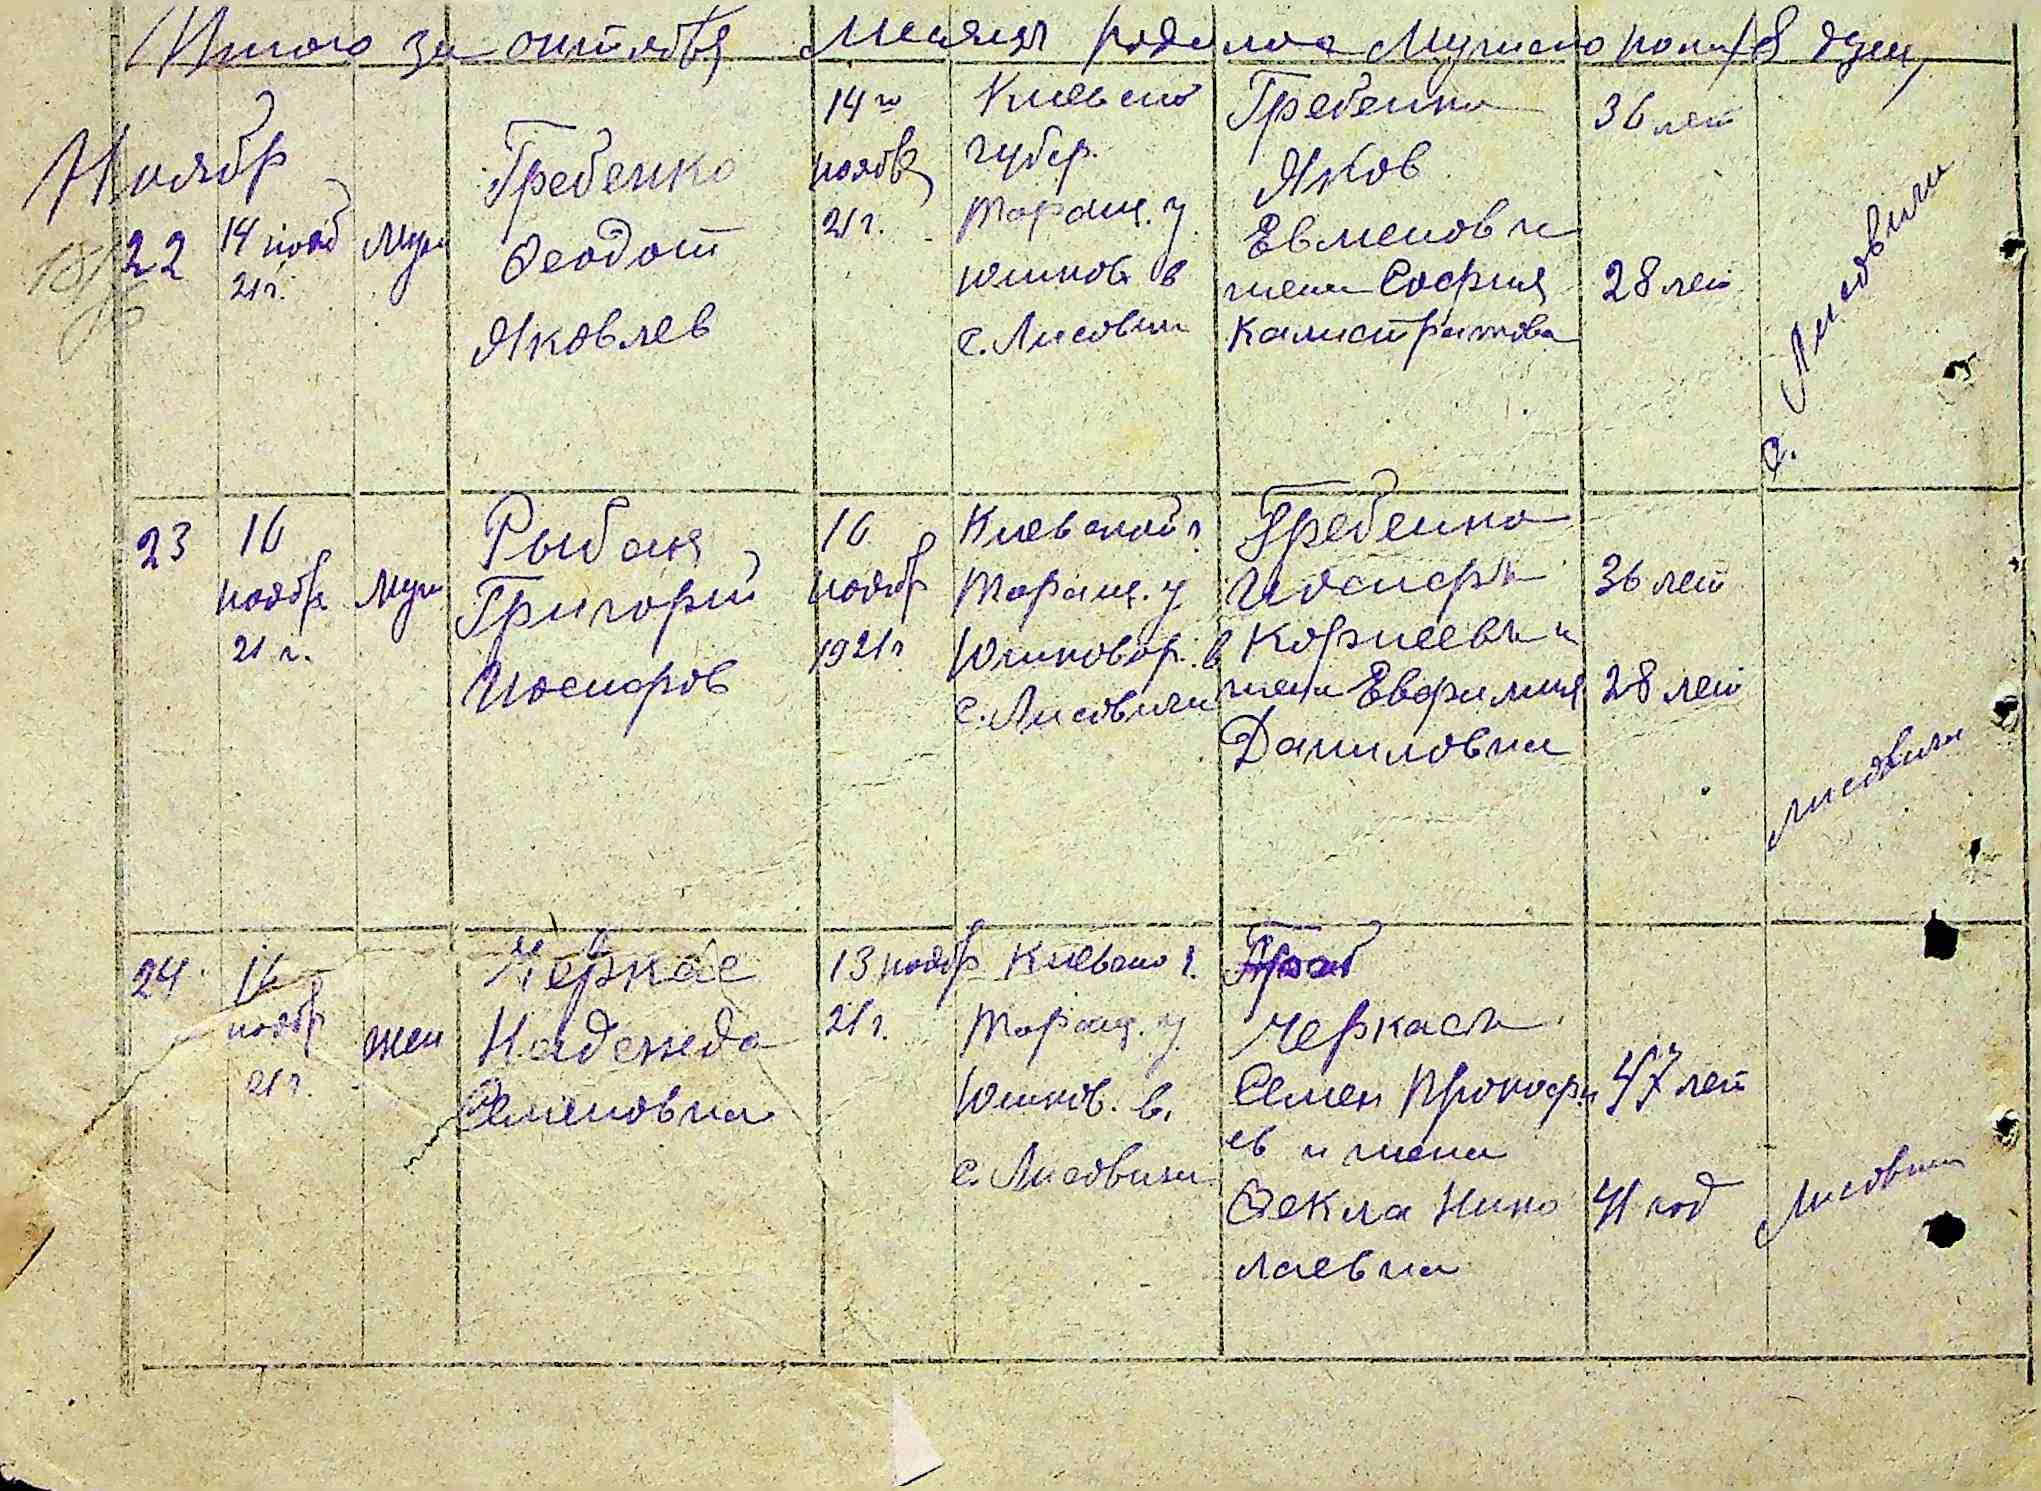 Итого за октябрь месяц родилось мужского пола 8 душ
Ноябр
22
14 нояб
21 г.
Муж
Гребенко
Феодот
Яковлев
14 го
ноябр
21 г.
Киевско
губер.
Таращ. у
Юшков в
с. Лисовичи
Гребенко
Яков
Евменов и
жена София
Калистратова
36 лет
28 лет
с. Лисовичи
23
16
ноябр
21 г.
Муж
Рыбак
Григорий
Иосифов
16
ноябр
1921 г
Киевской г.
Таращ. у
Юшковор. в
с. Лисовичи
Гребенко
Иосифъ
Корнеевъ и
жена Евфимия
Даниловна
36 лет
28 лет
Лисовичи
24
16
ноябр
21 г.
жен
Черкас
Надежда
Семеновна
13 ноябр
21 г.
Киевско г.
Таращ. у
Юшков. в.
с. Лисовичи
Черкасъ
Семен Прокофи
ев и жена
Фекла Нико
лаевна
47 лет
41 год
Лисовичи